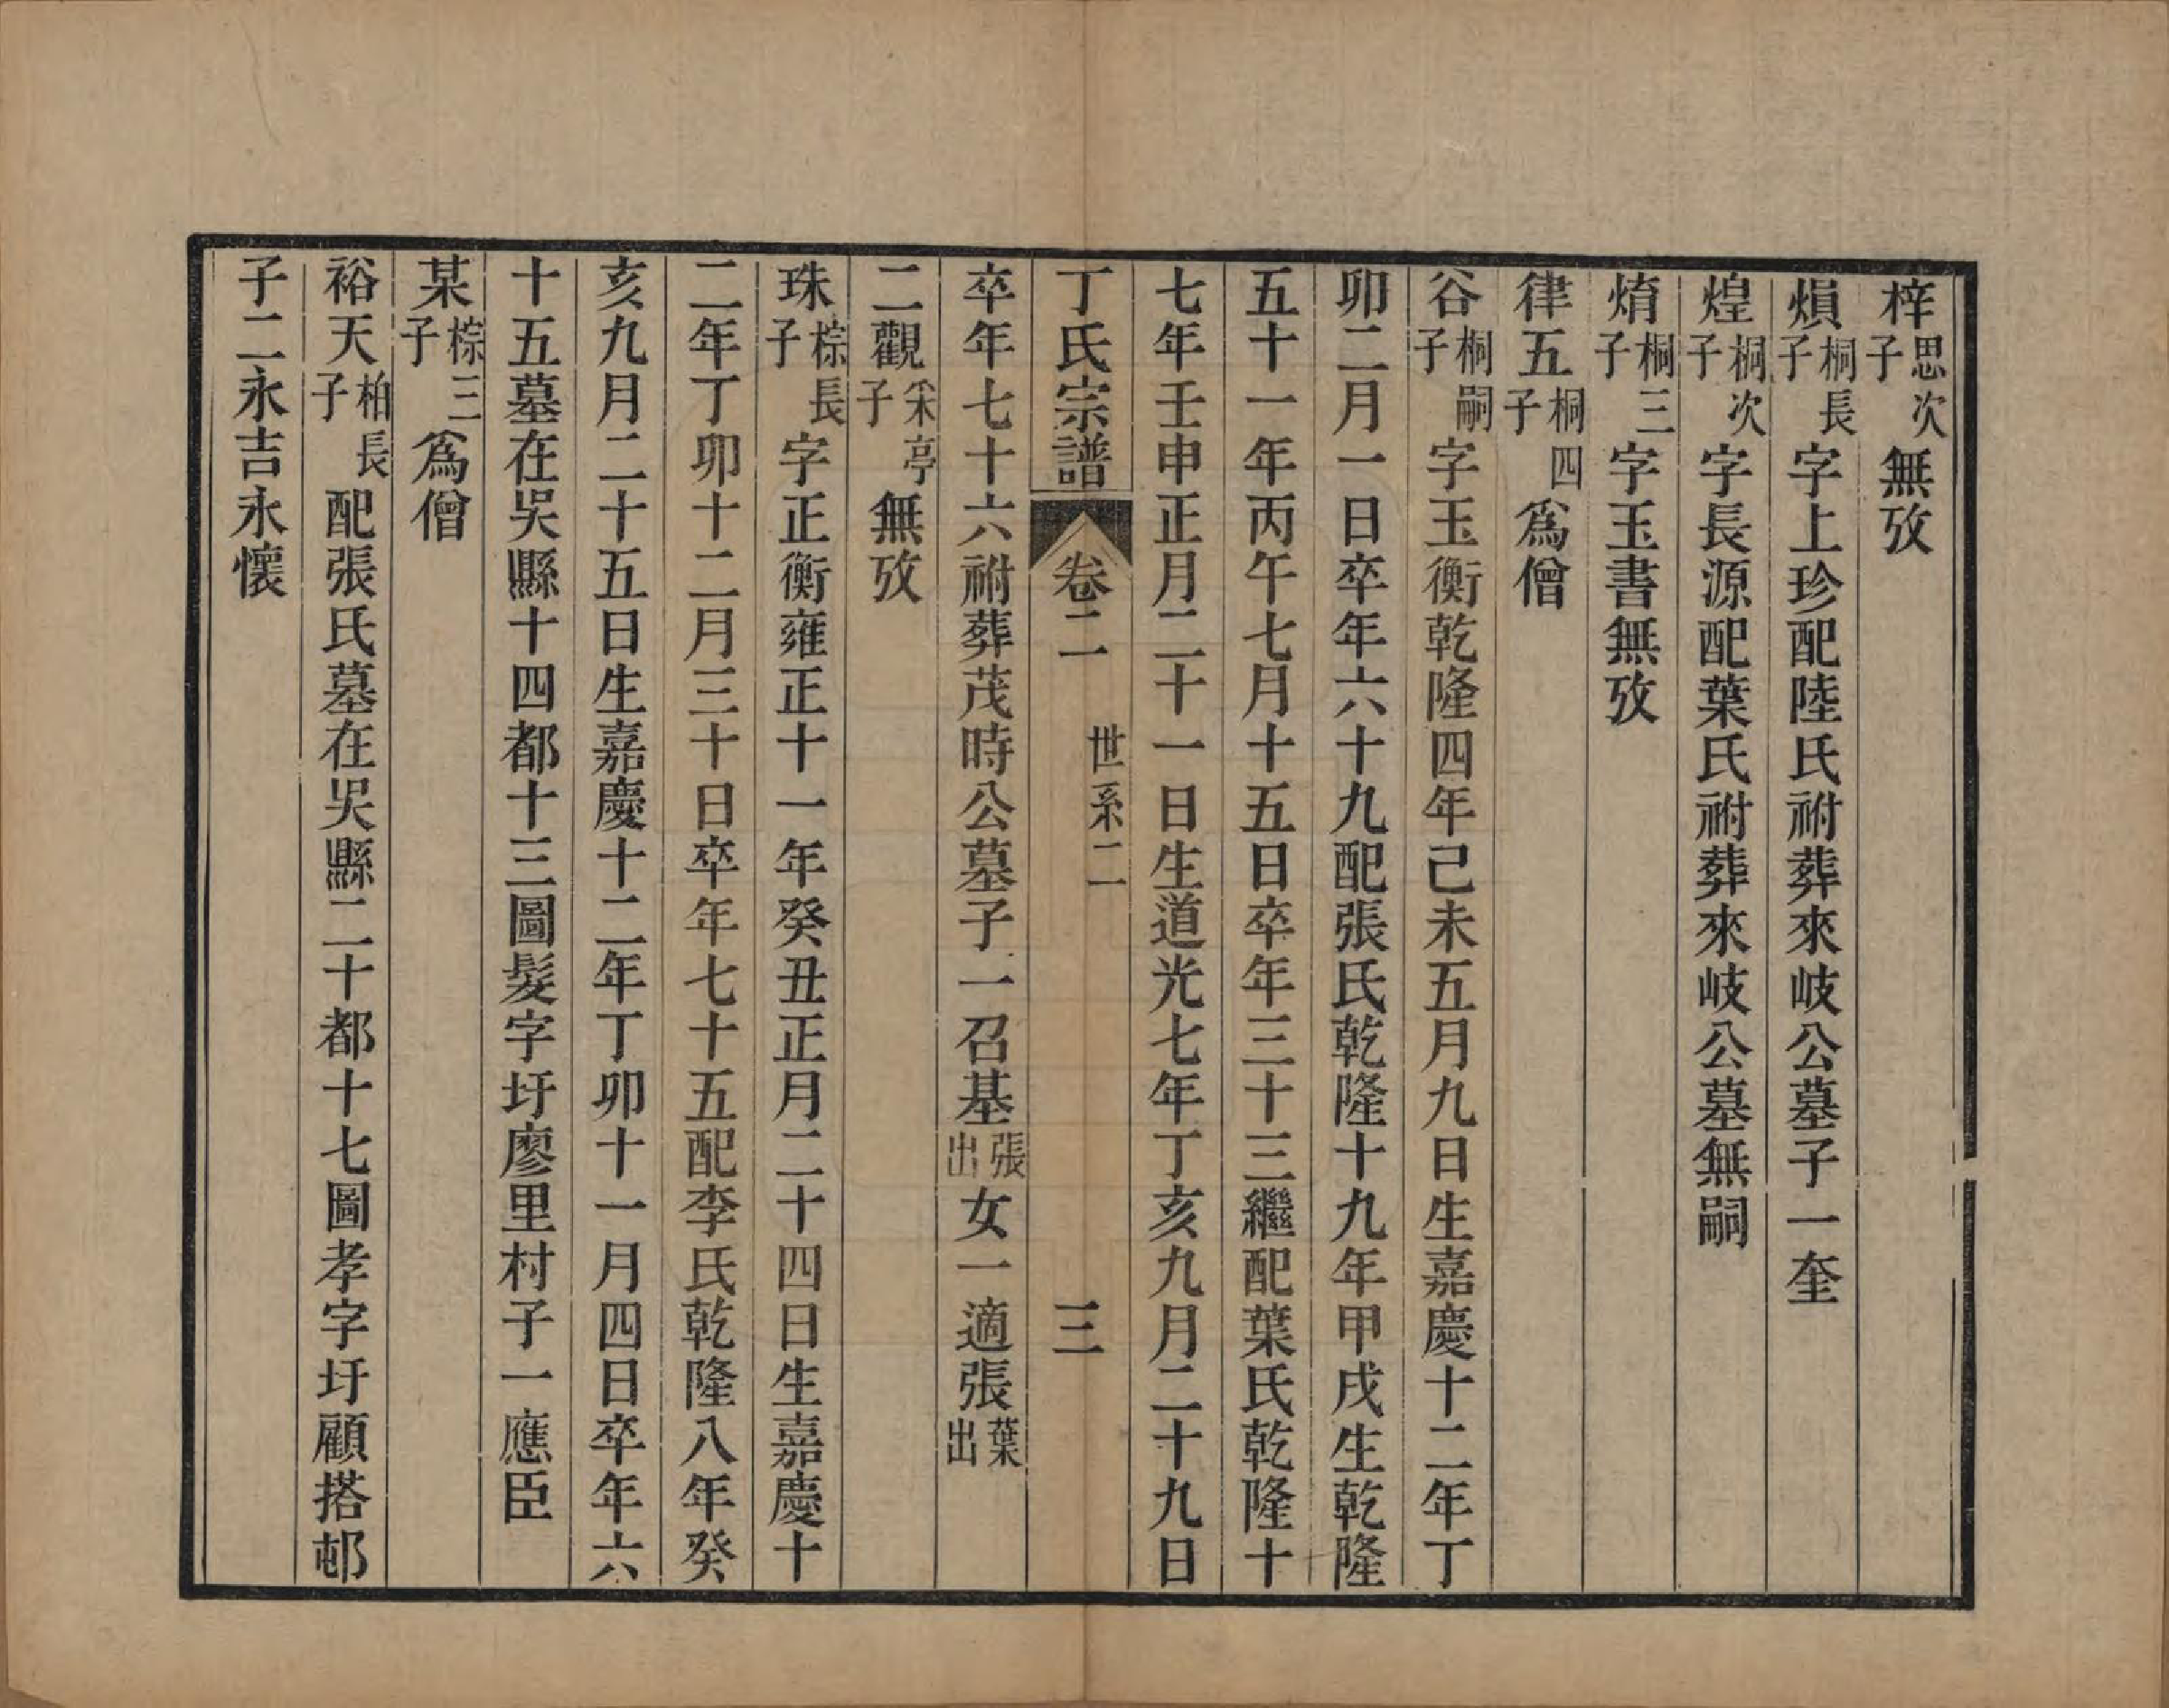 梓思次子無攷
熉桐長子字上珍配陸氏祔葬來岐公墓子一奎
煌桐次子字長源配葉氏祔葬來岐公墓無嗣
焴桐三子字玉書無攷
律五桐四子為僧
谷桐嗣子字玉衡乾隆四年己未五月九日生嘉慶十二年丁
卯二月一日卒年六十九配張氏乾隆十九年甲戌生乾隆
五十一年丙午七月十五日卒年三十三繼配葉氏乾隆十
七年壬申正月二十一日生道光七年丁亥九月二十九日
丁氏宗譜 卷二 世系二 三
卒年七十六祔葬茂時公墓子一召基張出女一適張葉出
二觀采亭子無攷
珠棕長子字正衡雍正十一年癸丑正月二十四日生嘉慶十
二年丁卯十二月三十日卒年七十五配李氏乾隆八年癸
亥九月二十五日生嘉慶十二年丁卯十一月四日卒年六
十五墓在吳縣十四都十三圖髮字圩廖里村子一應臣
某棕三子為僧
裕天柏長子配張氏墓在吳縣二十都十七圖孝字圩顧搭邨
子二永吉永懷